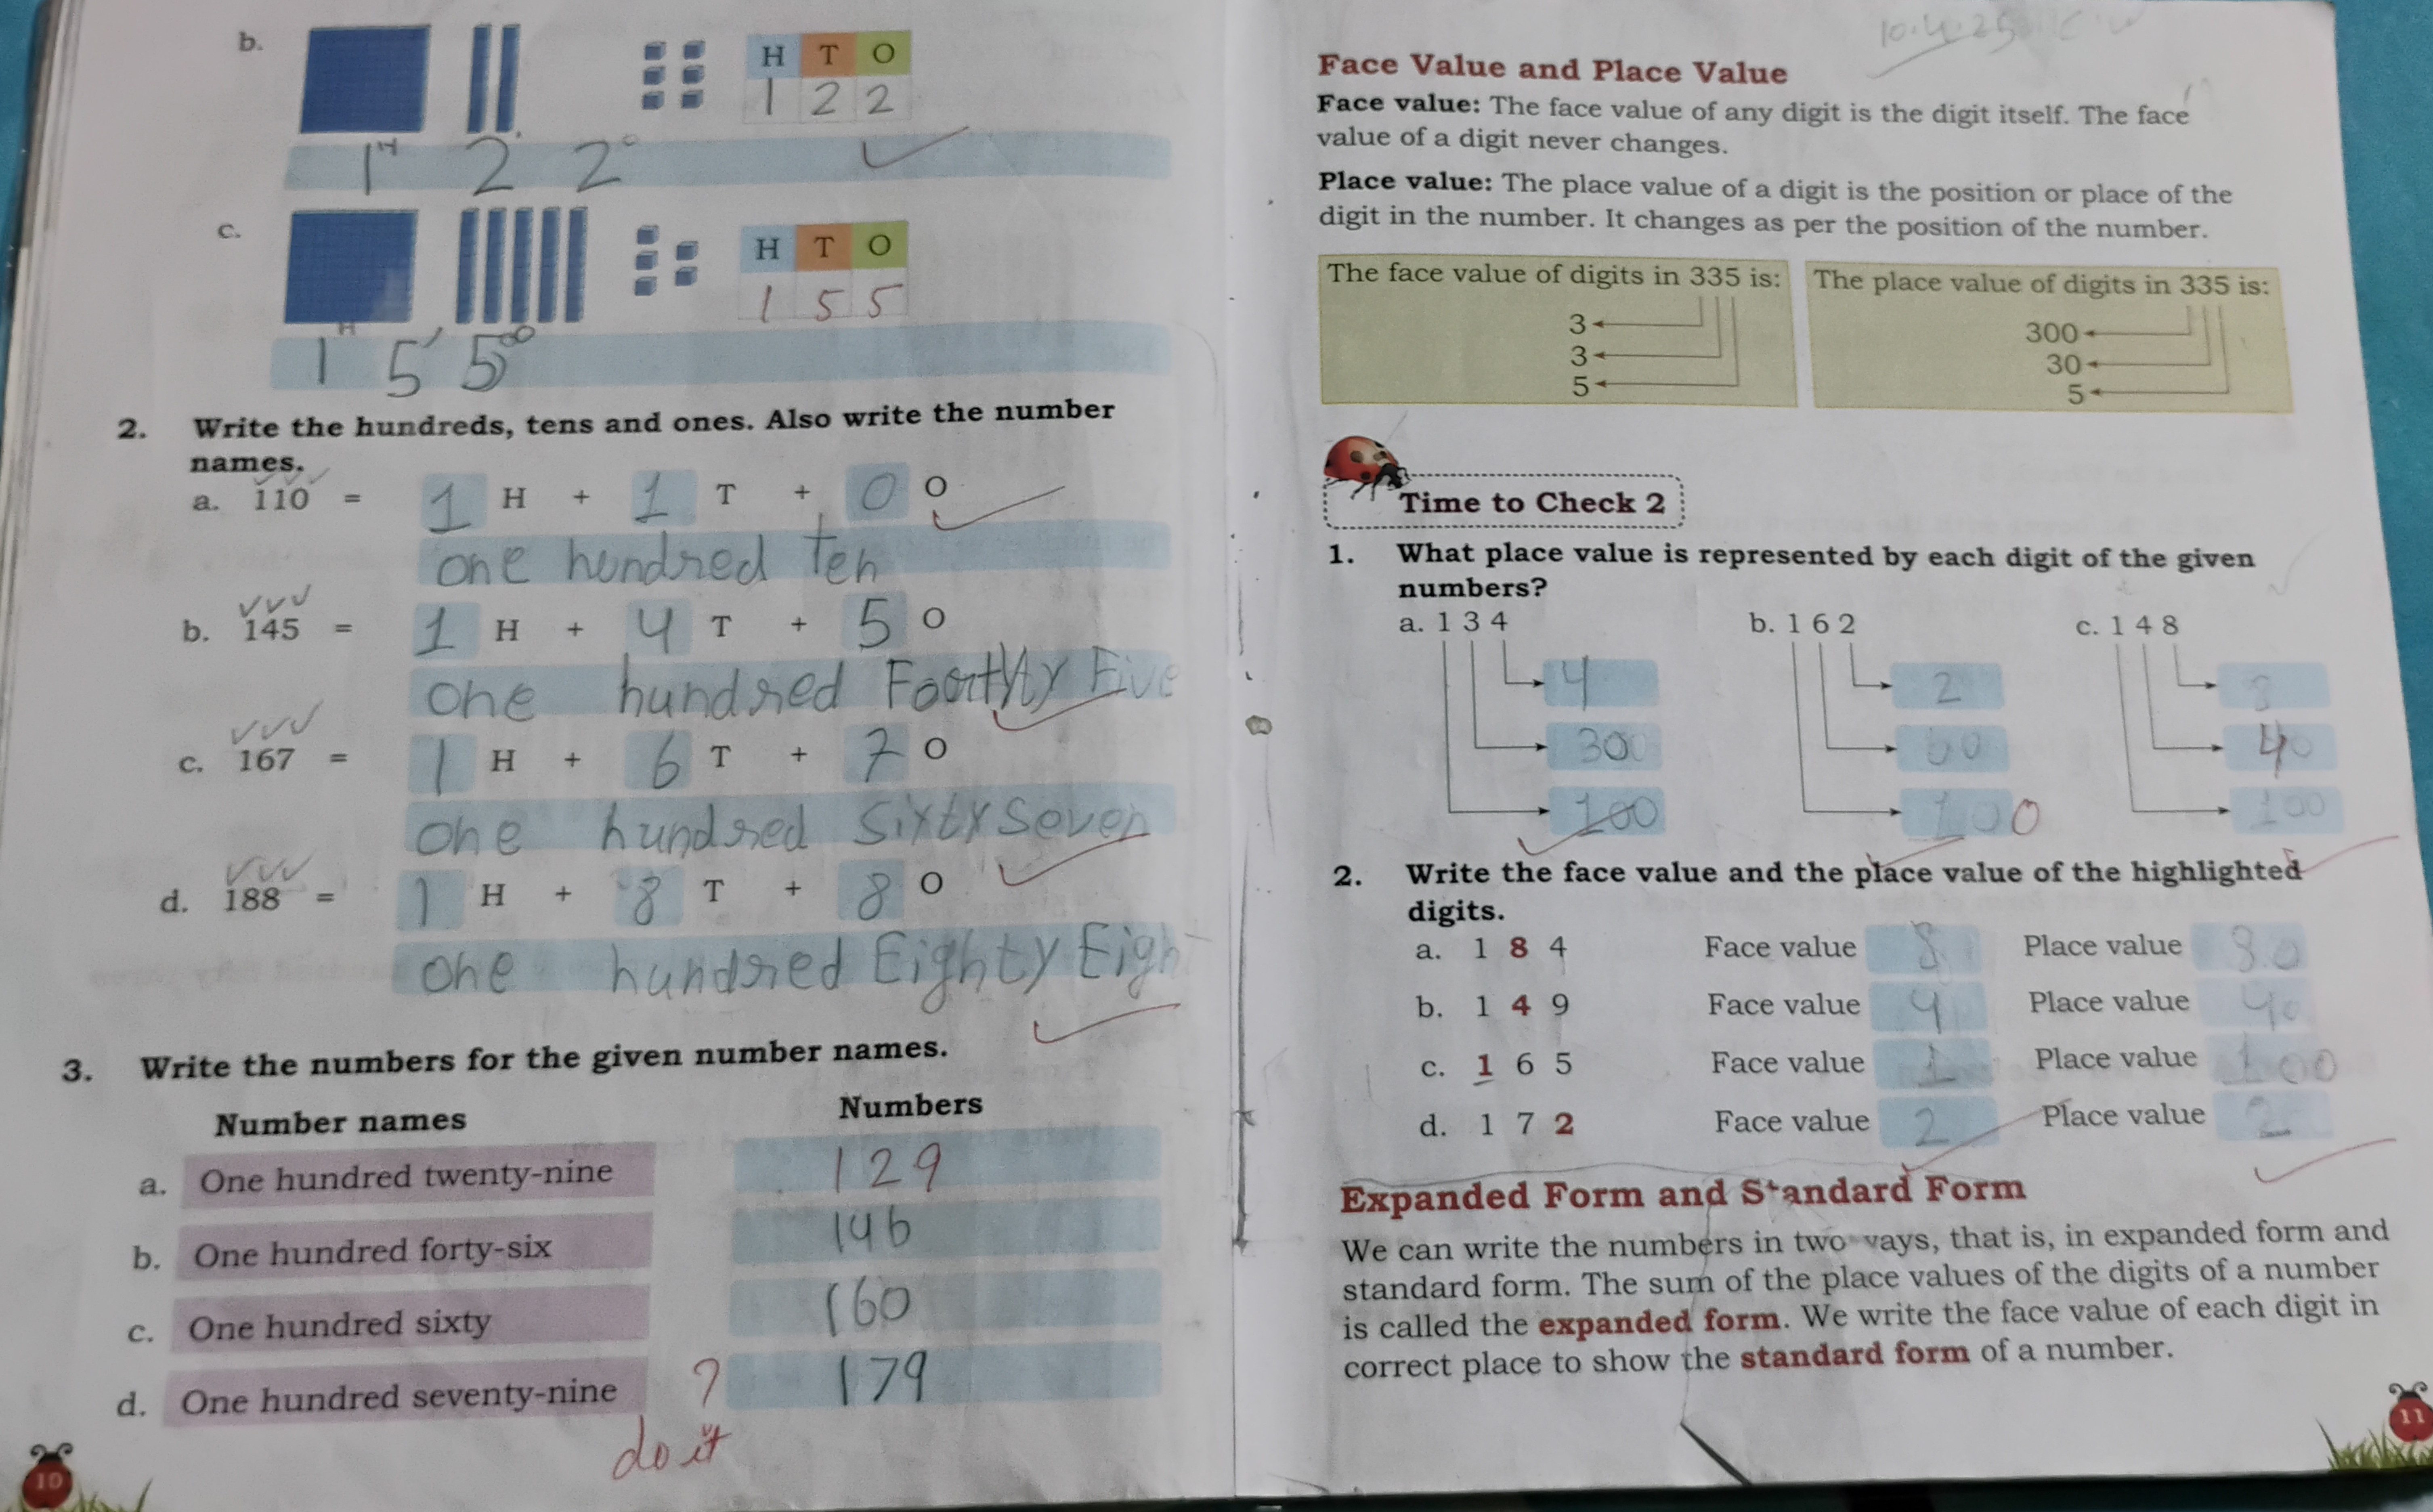 b.
H T O
1 2 2
1 H 2 2 o
c.
H T O
1 5 5
H
1 5 5 o
2. Write the hundreds, tens and ones. Also write the number
names.
a. 110 = 1 H + 1 T + 0 O
one hundred ten
b. 145 = 1 H + 4 T + 5 O
one hundred Five
c. 167 = 1 H + 6 T + 7 O
one hundred sixty seven
d. 188 = 1 H + 8 T + 8 O
one hundred Eighty Eigh
3. Write the numbers for the given number names.
Number names Numbers
a. One hundred twenty-nine 129
b. One hundred forty-six 146
c. One hundred sixty 160
d. One hundred seventy-nine ? 179
do it
10
10.4.25 C W
Face Value and Place Value
Face value: The face value of any digit is the digit itself. The face
value of a digit never changes.
Place value: The place value of a digit is the position or place of the
digit in the number. It changes as per the position of the number.
The face value of digits in 335 is:
3
3
5
The place value of digits in 335 is:
300
30
5
Time to Check 2
1. What place value is represented by each digit of the given
numbers?
a. 1 3 4 b. 1 6 2 c. 1 4 8
4 2 8
300 60 40
100 100 100
2. Write the face value and the place value of the highlighted
digits.
a. 1 8 4 Face value 8 Place value 80
b. 1 4 9 Face value 4 Place value 40
c. 1 6 5 Face value 1 Place value 100
d. 1 7 2 Face value 2 Place value 2
Expanded Form and Standard Form
We can write the numbers in two ways, that is, in expanded form and
standard form. The sum of the place values of the digits of a number
is called the expanded form. We write the face value of each digit in
correct place to show the standard form of a number.
11